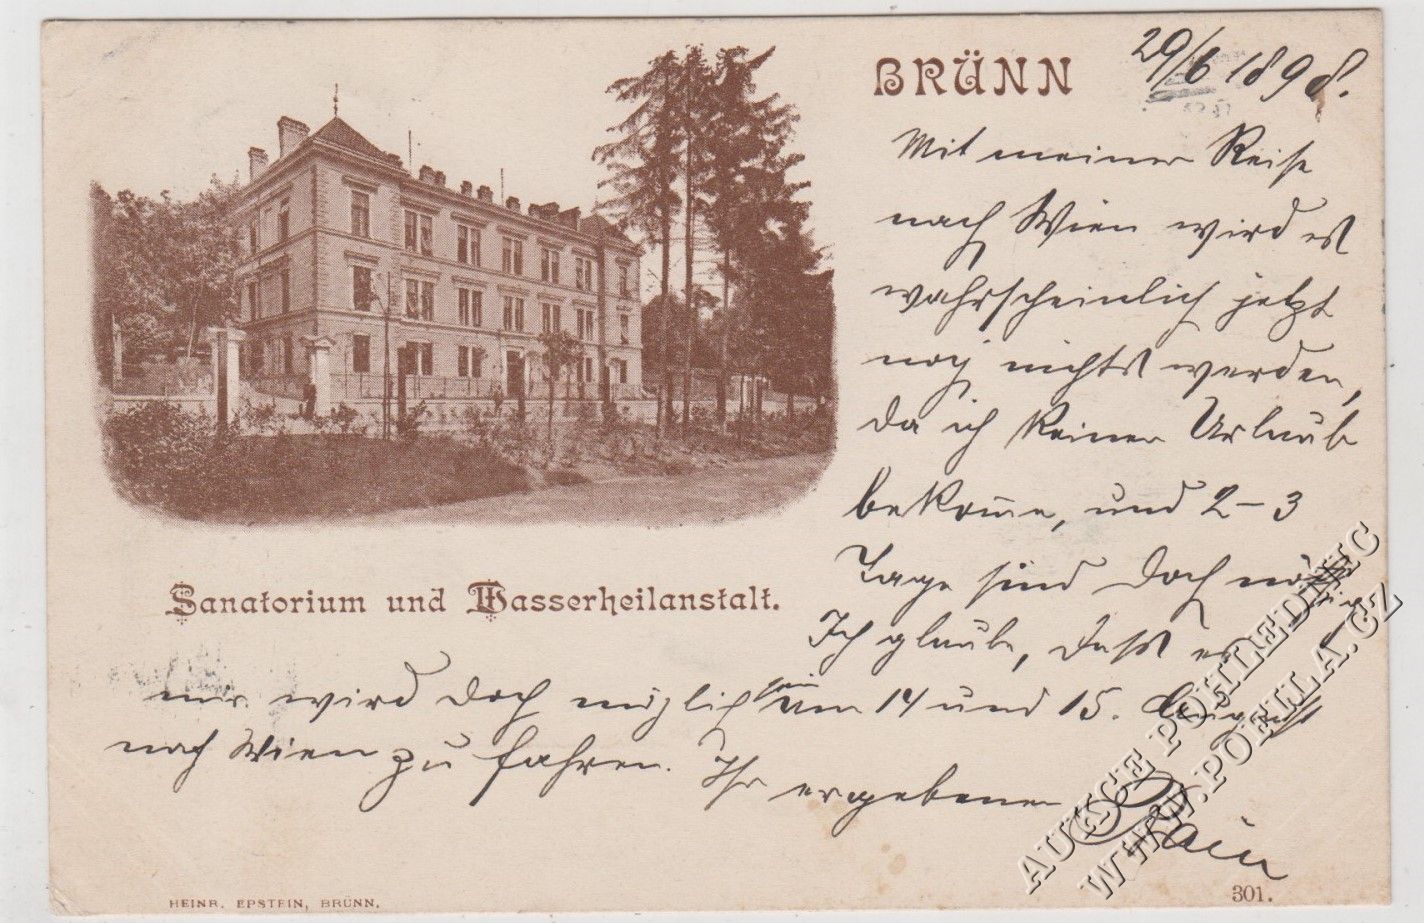 BRÜNN
29/6 1898.
Mit meiner Reise
nach Wien wird es
wahrscheinlich jetzt
noch nichts werden,
da ich keinen Urlaub
bekom̅e, und 2–3
Tage sind doch nötig
Ich glaube, daß es
mir wird doch möglich sein am 14 und 15. August
nach Wien zu fahren. Ihr ergebener
Sanatorium und Wasserheilanstalt.
HEINR. EPSTEIN, BRÜNN.
301.
AUKCE POHLEDNIC
WWW.POEHLA.CZ